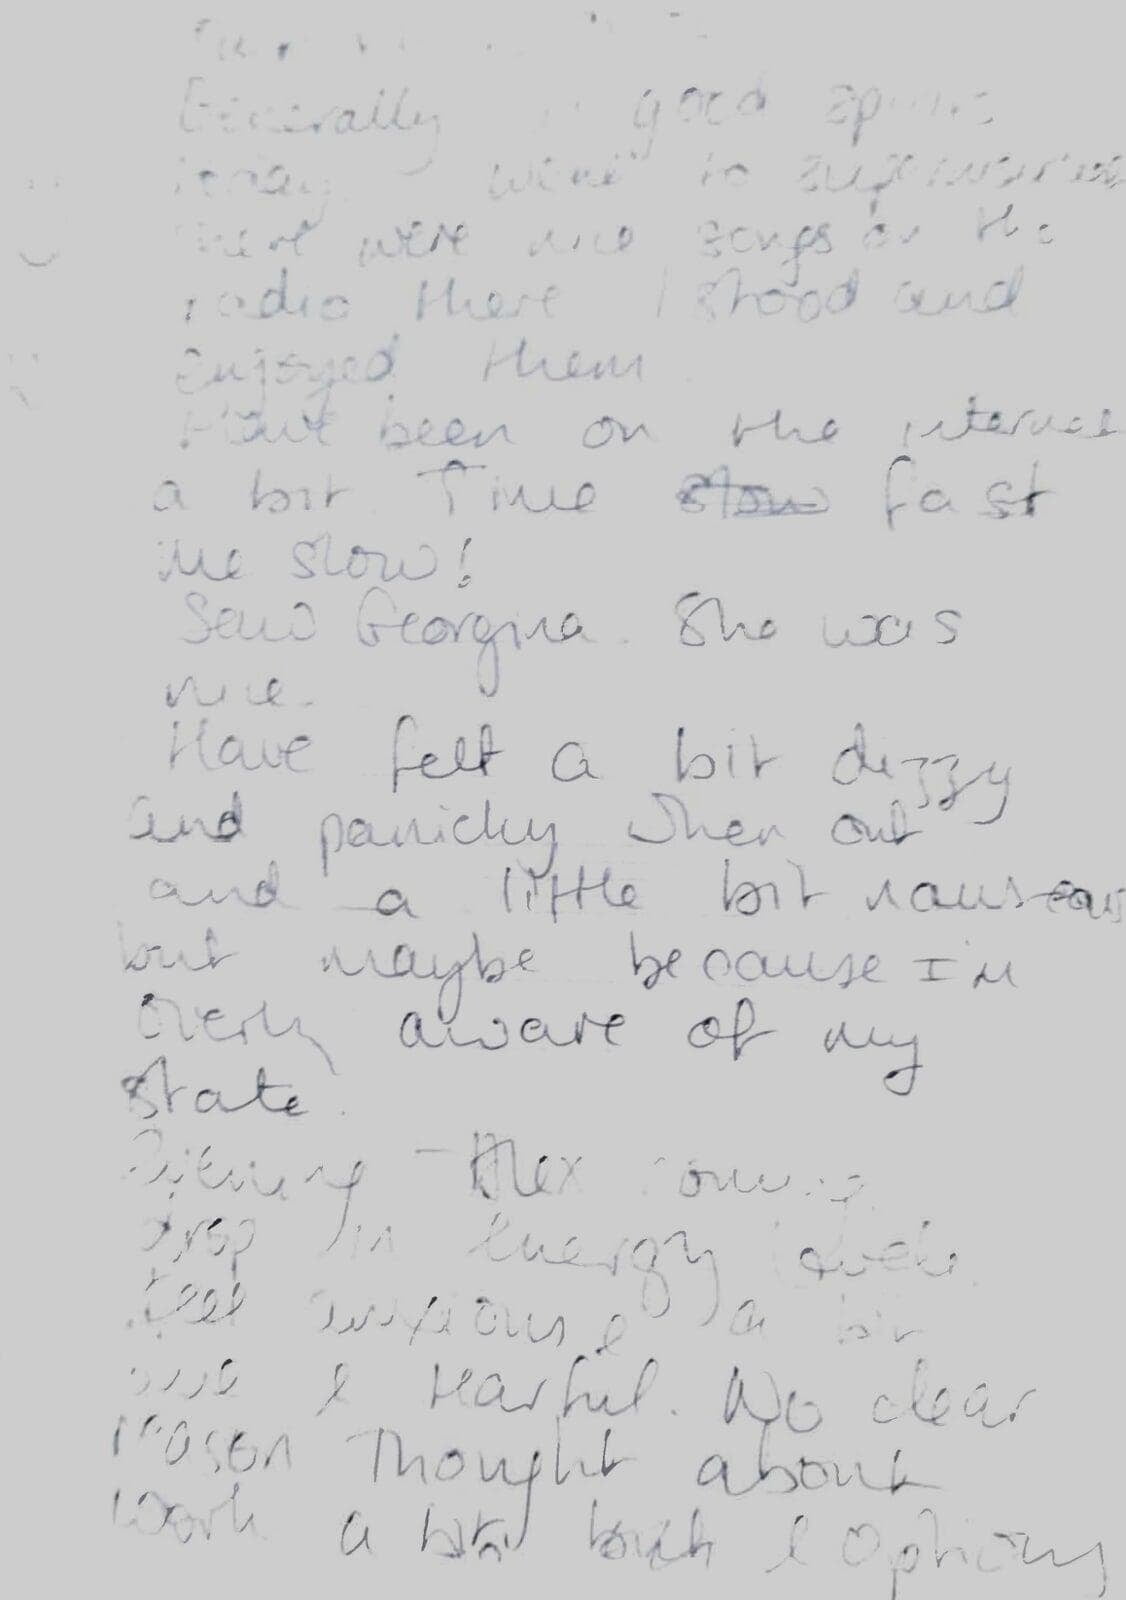 Generally in good spirits
today. Went to supermarket
there were nice songs on the
radio there I stood and
enjoyed them.
Have been on the internet
a bit. Time fast
me slow!
Saw Georgina. She was
nice.
Have felt a bit dizzy
and panicky when out
and a little bit nauseous
but maybe because I'm
overly aware of my
state.
Evening - Alex
drop in energy levels.
feel anxious & a bit
& tearful. No clear
reason Thought about
work a bit & options